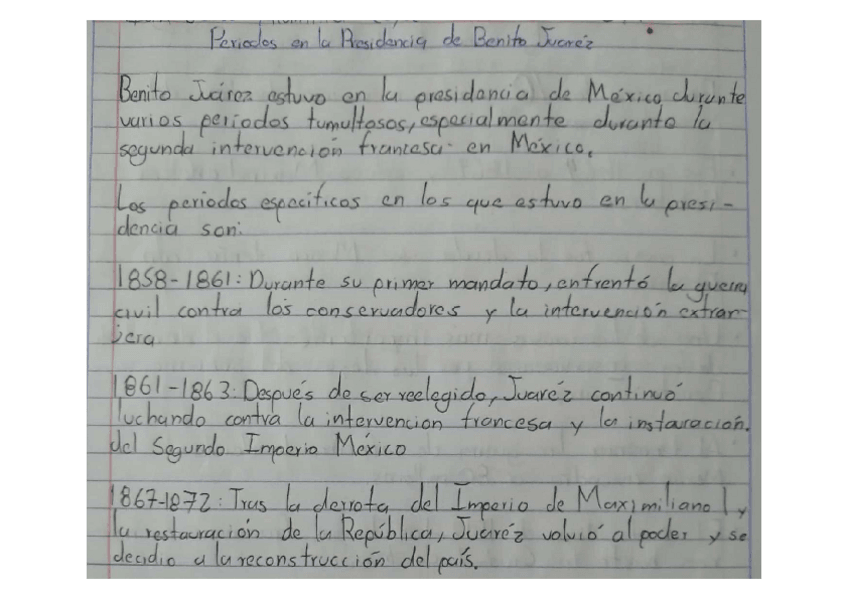 Periodos en la Presidencia de Benito Juaréz
Benito Juárez estuvo en la presidencia de México durante
varios periodos tumultosos, especialmente durante la
segunda intervención francesa en México.
Los periodos especificos en los que estuvo en la presi-
dencia son:
1858-1861: Durante su primer mandato, enfrentó la guerra
civil contra los conservadores y la intervención extran-
jera
1861-1863: Después de ser reelegido, Juaréz continuó
luchando contra la intervencion francesa y la instauración.
del Segundo Imperio México
1867-1872: Tras la derrota del Imperio de Maximiliano I y
la restauración de la República, Juaréz volvió al poder y se
decidio a la reconstrucción del país.